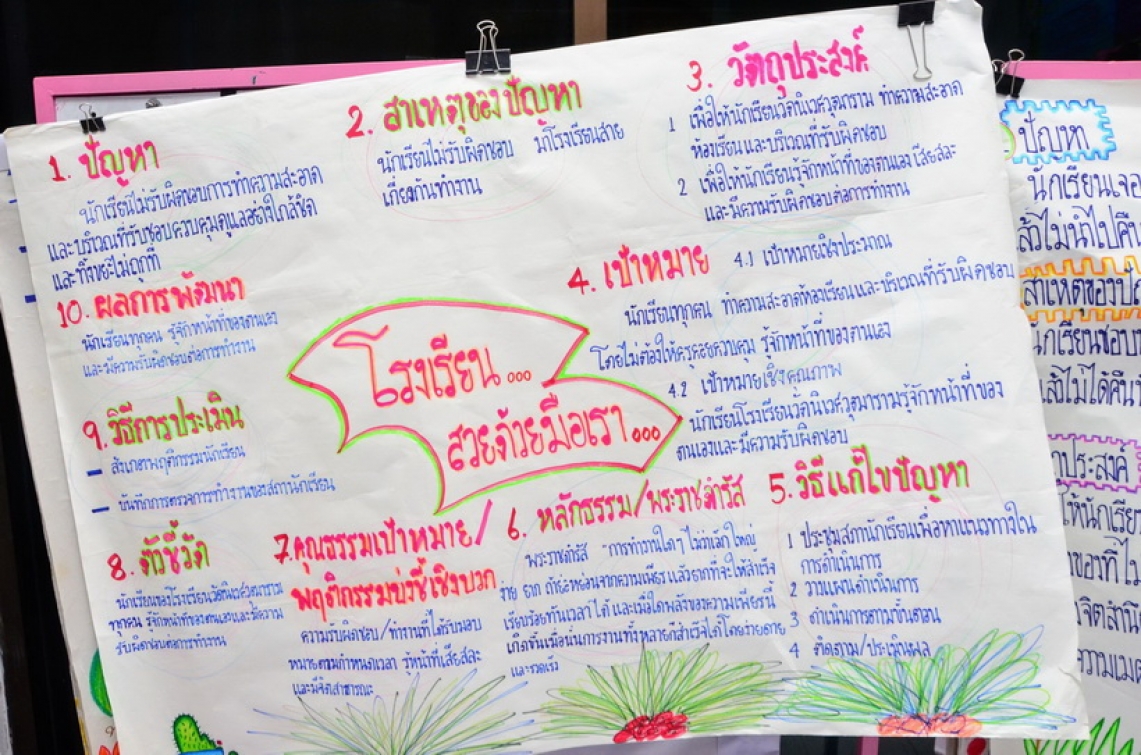 1. ปัญหา
นักเรียนไม่รับผิดชอบการทำความสะอาด
และบริเวณที่รับชอบควบคุมดูแลอย่างใกล้ชิด
และทิ้งขยะไม่ถูกที่
2. สาเหตุของปัญหา
นักเรียนไม่รับผิดชอบ มาโรงเรียนสาย
เกี่ยงกันทำงาน
3. วัตถุประสงค์
1 เพื่อให้นักเรียนวัดนิเวศวุฒาราม ทำความสะอาด
ห้องเรียนและบริเวณที่รับผิดชอบ
2 เพื่อให้นักเรียนรู้จักหน้าที่ของตนเอง เสียสละ
และมีความรับผิดชอบต่อการทำงาน
4. เป้าหมาย 4.1 เป้าหมายเชิงประมาณ
นักเรียนทุกคน ทำความสะอาดห้องเรียนและบริเวณที่รับผิดชอบ
โดยไม่ต้องให้ครูคอยควบคุม รู้จักหน้าที่ของตนเอง
4.2 เป้าหมายเชิงคุณภาพ
นักเรียนโรงเรียนวัดนิเวศวุฒารามรู้จักหน้าที่ของ
ตนเองและมีความรับผิดชอบ
โรงเรียน...
สวยด้วยมือเรา...
5. วิธีแก้ไขปัญหา
1 ประชุมสภานักเรียนเพื่อหาแนวทางใน
การดำเนินการ
2 วางแผนดำเนินการ
3 ดำเนินการตามขั้นตอน
4 ติดตาม/ประเมินผล
6. หลักธรรม/พระราชดำรัส
พระราชดำรัส -การทำงานใดๆ ไม่ว่าเล็ก ใหญ่
ง่าย ยาก ถ้าย่อหย่อนจากความเพียร แล้วยากที่จะให้สำเร็จ
เรียบร้อยทันเวลาได้ และเมื่อใดพลังของความเพียรนี้
เกิดขึ้นเมื่อนั้นการงานทั้งหลายก็สำเร็จได้โดยง่ายดาย
และรวดเร็ว
7.คุณธรรมเป้าหมาย/
พฤติกรรมบ่งชี้เชิงบวก
ความรับผิดชอบ/ทำงานที่ได้รับมอบ
หมายตามกำหนดเวลา รู้หน้าที่เสียสละ
และมีจิตสาธารณะ
8. ตัวชี้วัด
นักเรียนของโรงเรียนวัดนิเวศวุฒาราม
ทุกคน รู้จักหน้าที่ของตนเองและมีความ
รับผิดชอบต่อการทำงาน
9.วิธีการประเมิน
- สังเกตพฤติกรรมนักเรียน
- บันทึกการตรวจการทำงานของสภานักเรียน
10. ผลการพัฒนา
นักเรียนทุกคน รู้จักหน้าที่ของตนเอง
และมีความรับผิดชอบต่อการทำงาน
ปัญหา
นักเรียนเจอ
แล้วไม่นำไปคืน
สาเหตุของปัญ
นักเรียนชอบ